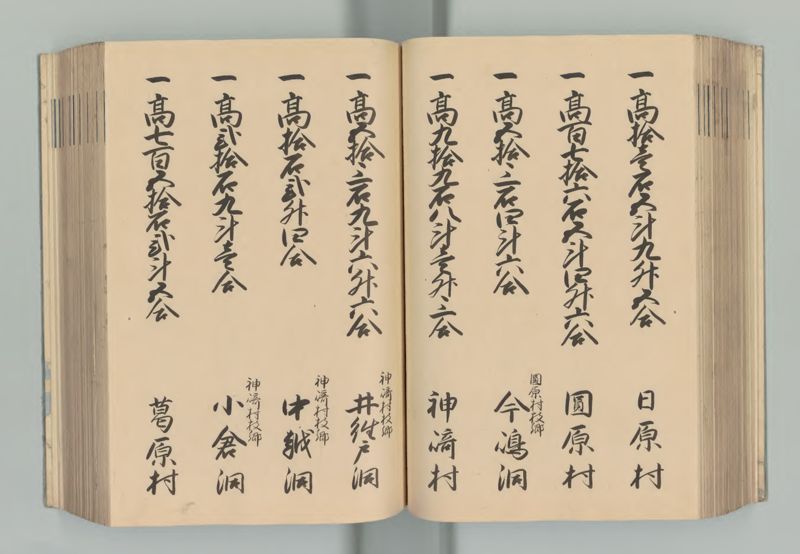 一高拾壱石五斗九升五合 日原村
一高百七拾六石五斗四升六合 圓原村
一高五拾三石四斗六合 圓原村枝郷 今嶋洞
一高九拾九石八斗壱升三合 神﨑村
一高五拾三石九斗六升六合 神﨑村枝郷 井往戸洞
一高拾石弐升四合 神﨑村枝郷 中越洞
一高弐拾石九斗壱合 神﨑村枝郷 小倉洞
一高七百五拾石弐斗五合 葛原村